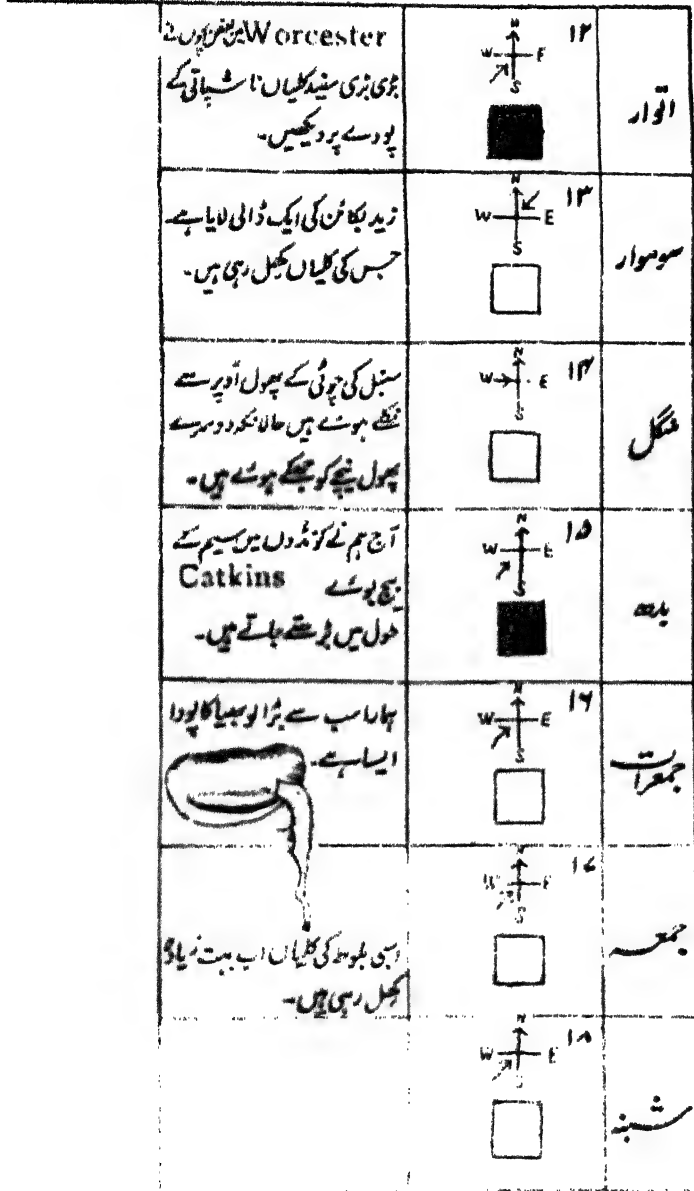 اتوار
۱۲
N
W E
S
Worcester میں بعض بچوں نے
بڑی بڑی سفید کلیاں ناشپاتی کے
پودے پر دیکھیں۔
سوموار
۱۳
N
W E
S
زید بکائن کی ایک ڈالی لایا ہے
جس کی کلیاں کھل رہی ہیں۔
منگل
۱۴
N
W E
S
سنبل کی چوٹی کے پھول اُوپر سے
نکلے ہوئے ہیں حالانکہ دوسرے
پھول نیچے کو جھکے ہوئے ہیں۔
بدھ
۱۵
N
W E
S
آج ہم نے کونڈوں میں سیم کے
بیج بوئے Catkins
طول میں بڑھتے جاتے ہیں۔
جمعرات
۱۶
N
W E
S
ہمارا سب سے بڑا لوبیا کا پودا
ایسا ہے۔
جمعہ
۱۷
N
W E
S
اسپی بلوط کی کلیاں اب بہت زیادہ
کھل رہی ہیں۔
شنبہ
۱۸
N
W E
S